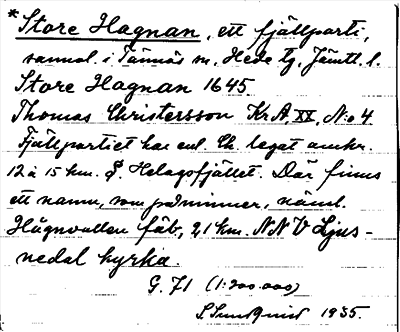 *Store Hagnan, ett fjällparti,
sannol. i Tännäs sn, Hede tg, Jämtl. l.
Store Hagnan 1645.
Thomas Christersson Kr.A. XX, N:o 4
Fjällpartiet har enl. Ch. legat omkr.
12 à 15 km. S. Helagsfjället. Där finns
ett namn, som påminner, näml.
Hågnvallen fäb., 21 km. NNV Ljus-
nedal kyrka.
G. 71 (1:200.000)
S Sundqvist 1935.